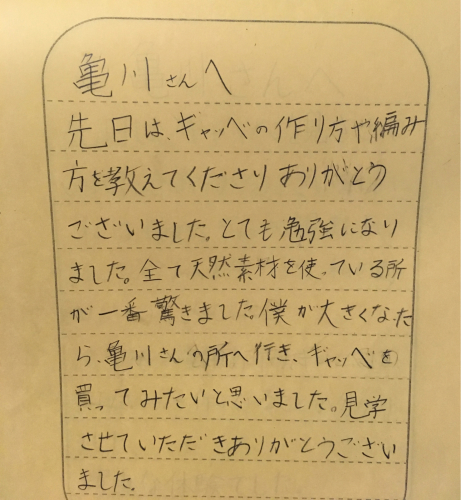 亀川さんへ
先日は、ギャッベの作り方や編み
方を教えてくださりありがとう
ございました。とても勉強になり
ました。全て天然素材を使っている所
が一番驚きました。僕が大きくなった
ら、亀川さんの所へ行き、ギャッベを
買ってみたいと思いました。見学
させていただきありがとうござい
ました。